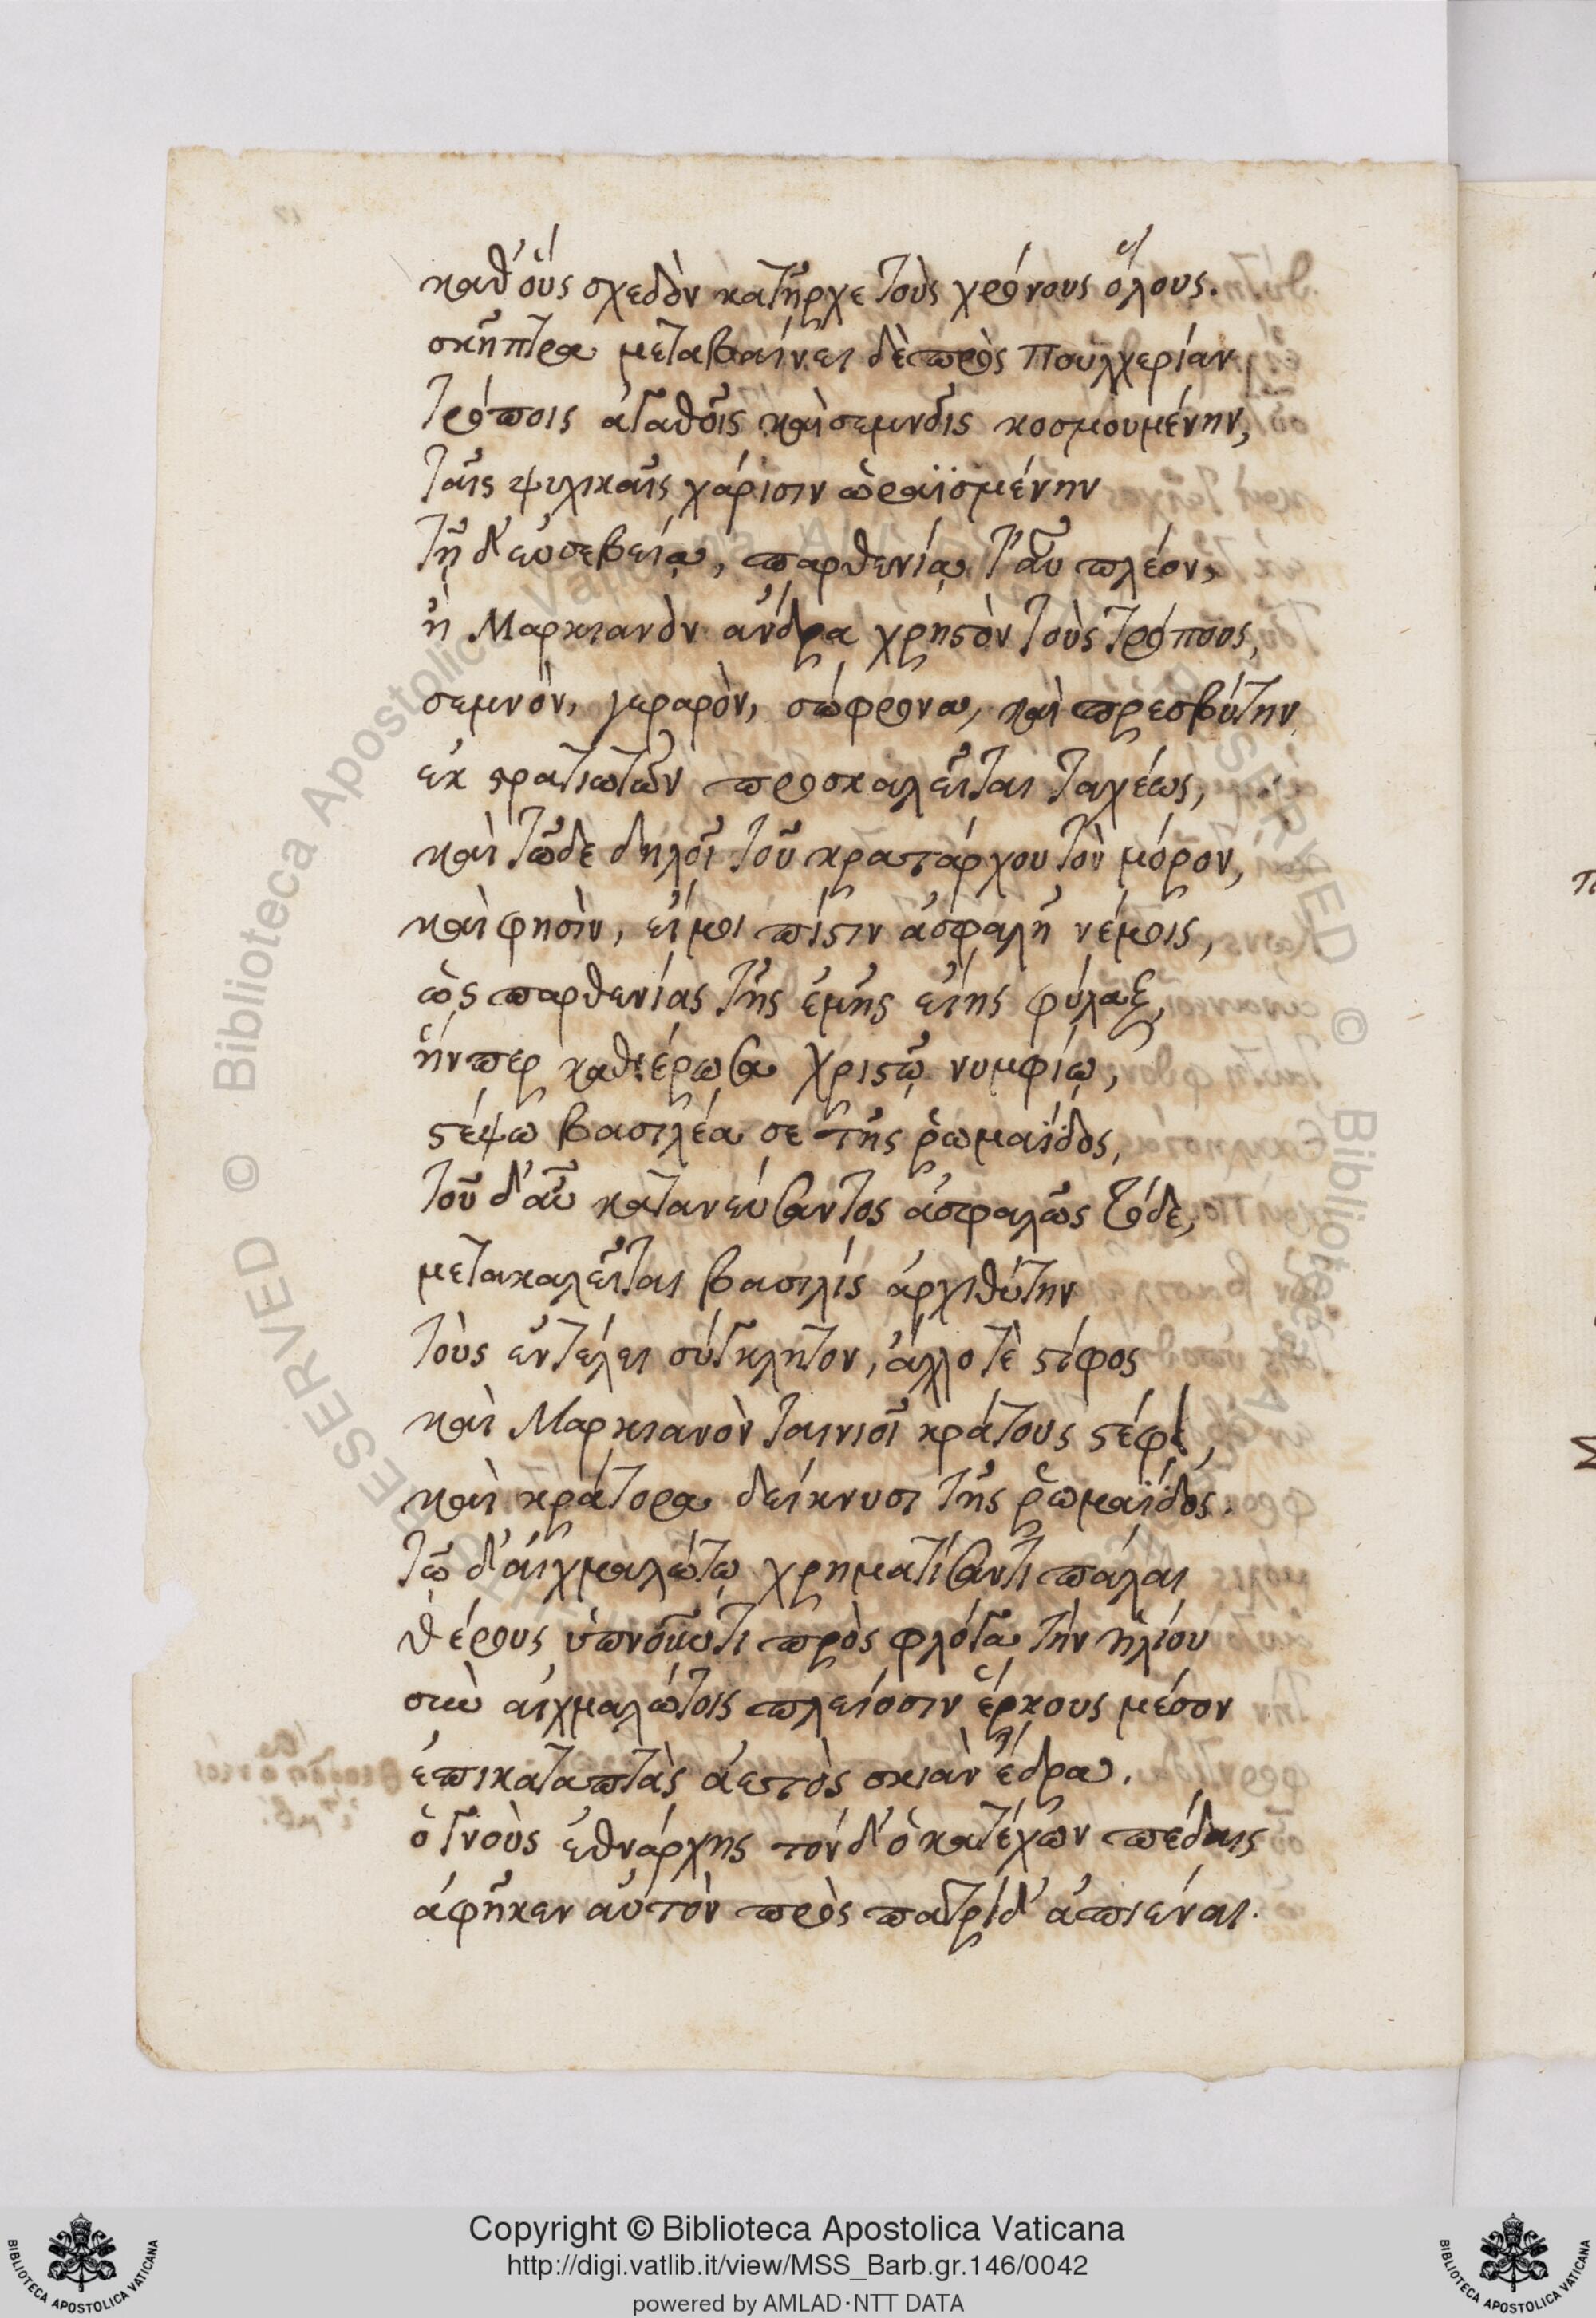 καθ' οὓς σχεδὸν κατῆρχε τοὺς χρόνους ὅλους.
σκῆπτρα μεταβαίνει δὲ πρὸς Πουλχερίαν
τρόποις ἀγαθοῖς καὶ σεμνοῖς κοσμουμένην,
ταῖς ψυχικαῖς χάρισιν ὡραϊσμένην
τῇ δ' εὐσεβείᾳ, παρθενίᾳ τ' αὖ πλέον,
ἡ Μαρκιανὸν ἄνδρα χρηστὸν τοὺς τρόπους,
σεμνὸν, γεραρὸν, σώφρονα, καὶ πρεσβύτην
ἐκ στρατιωτῶν προσκαλεῖται ταχέως,
καὶ τῷδε δηλοῖ τοῦ κρατάρχου τὸν μόρον,
καὶ φησὶν, εἴ μοι πίστιν ἀσφαλῆ νέμοις,
ὡς παρθενίας τῆς ἐμῆς εἴης φύλαξ,
ἥνπερ καθιέρωσα χριστῷ νυμφίῳ,
στέψω βασιλέα σε τῆς ῥωμαΐδος,
τοῦ δ' αὖ κατανεύσαντος ἀσφαλῶς τόδε,
μετακαλεῖται βασιλὶς ἀρχιθύτην
τοὺς ἐν τέλει σύγκλητον, ἄλλο τὲ στίφος
καὶ Μαρκιανὸν ταινιοῖ κράτους στέφει,
καὶ κράτορα δείκνυσι τῆς ῥωμαΐδος.
τῷ δ' αἰχμαλώτῳ χρηματίσαντι πάλαι
θέρους ὑπνοῦντι πρὸς φλόγα τὴν ἡλίου
σὺν αἰχμαλώτοις πλείοσιν ἕρκους μέσον
ἐπικαταπτὰς ἀετὸς σκιὰν ἕδρα.
ὃ γνοὺς ἐθνάρχης τόνδ' ὁ κατέχων πέδαις
ἀφῆκεν αὐτὸν πρὸς πατρίδ' ἀπιέναι.
© Biblioteca Apostolica Vaticana
Copyright © Biblioteca Apostolica Vaticana
http://digi.vatlib.it/view/MSS_Barb.gr.146/0042
powered by AMLAD·NTT DATA
BIBLIOTECA APOSTOLICA VATICANA
BIBLIOTECA APOSTOLICA VATICANA